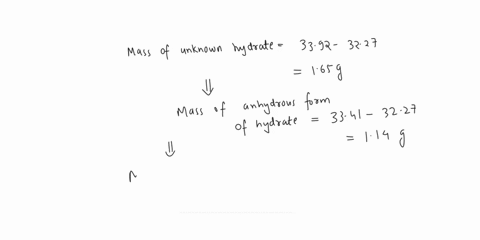 Mass of unknown hydrate = 33.92 - 32.27
= 1.65 g
⇓
Mass of anhydrous form
of hydrate = 33.41 - 32.27
= 1.14 g
⇓